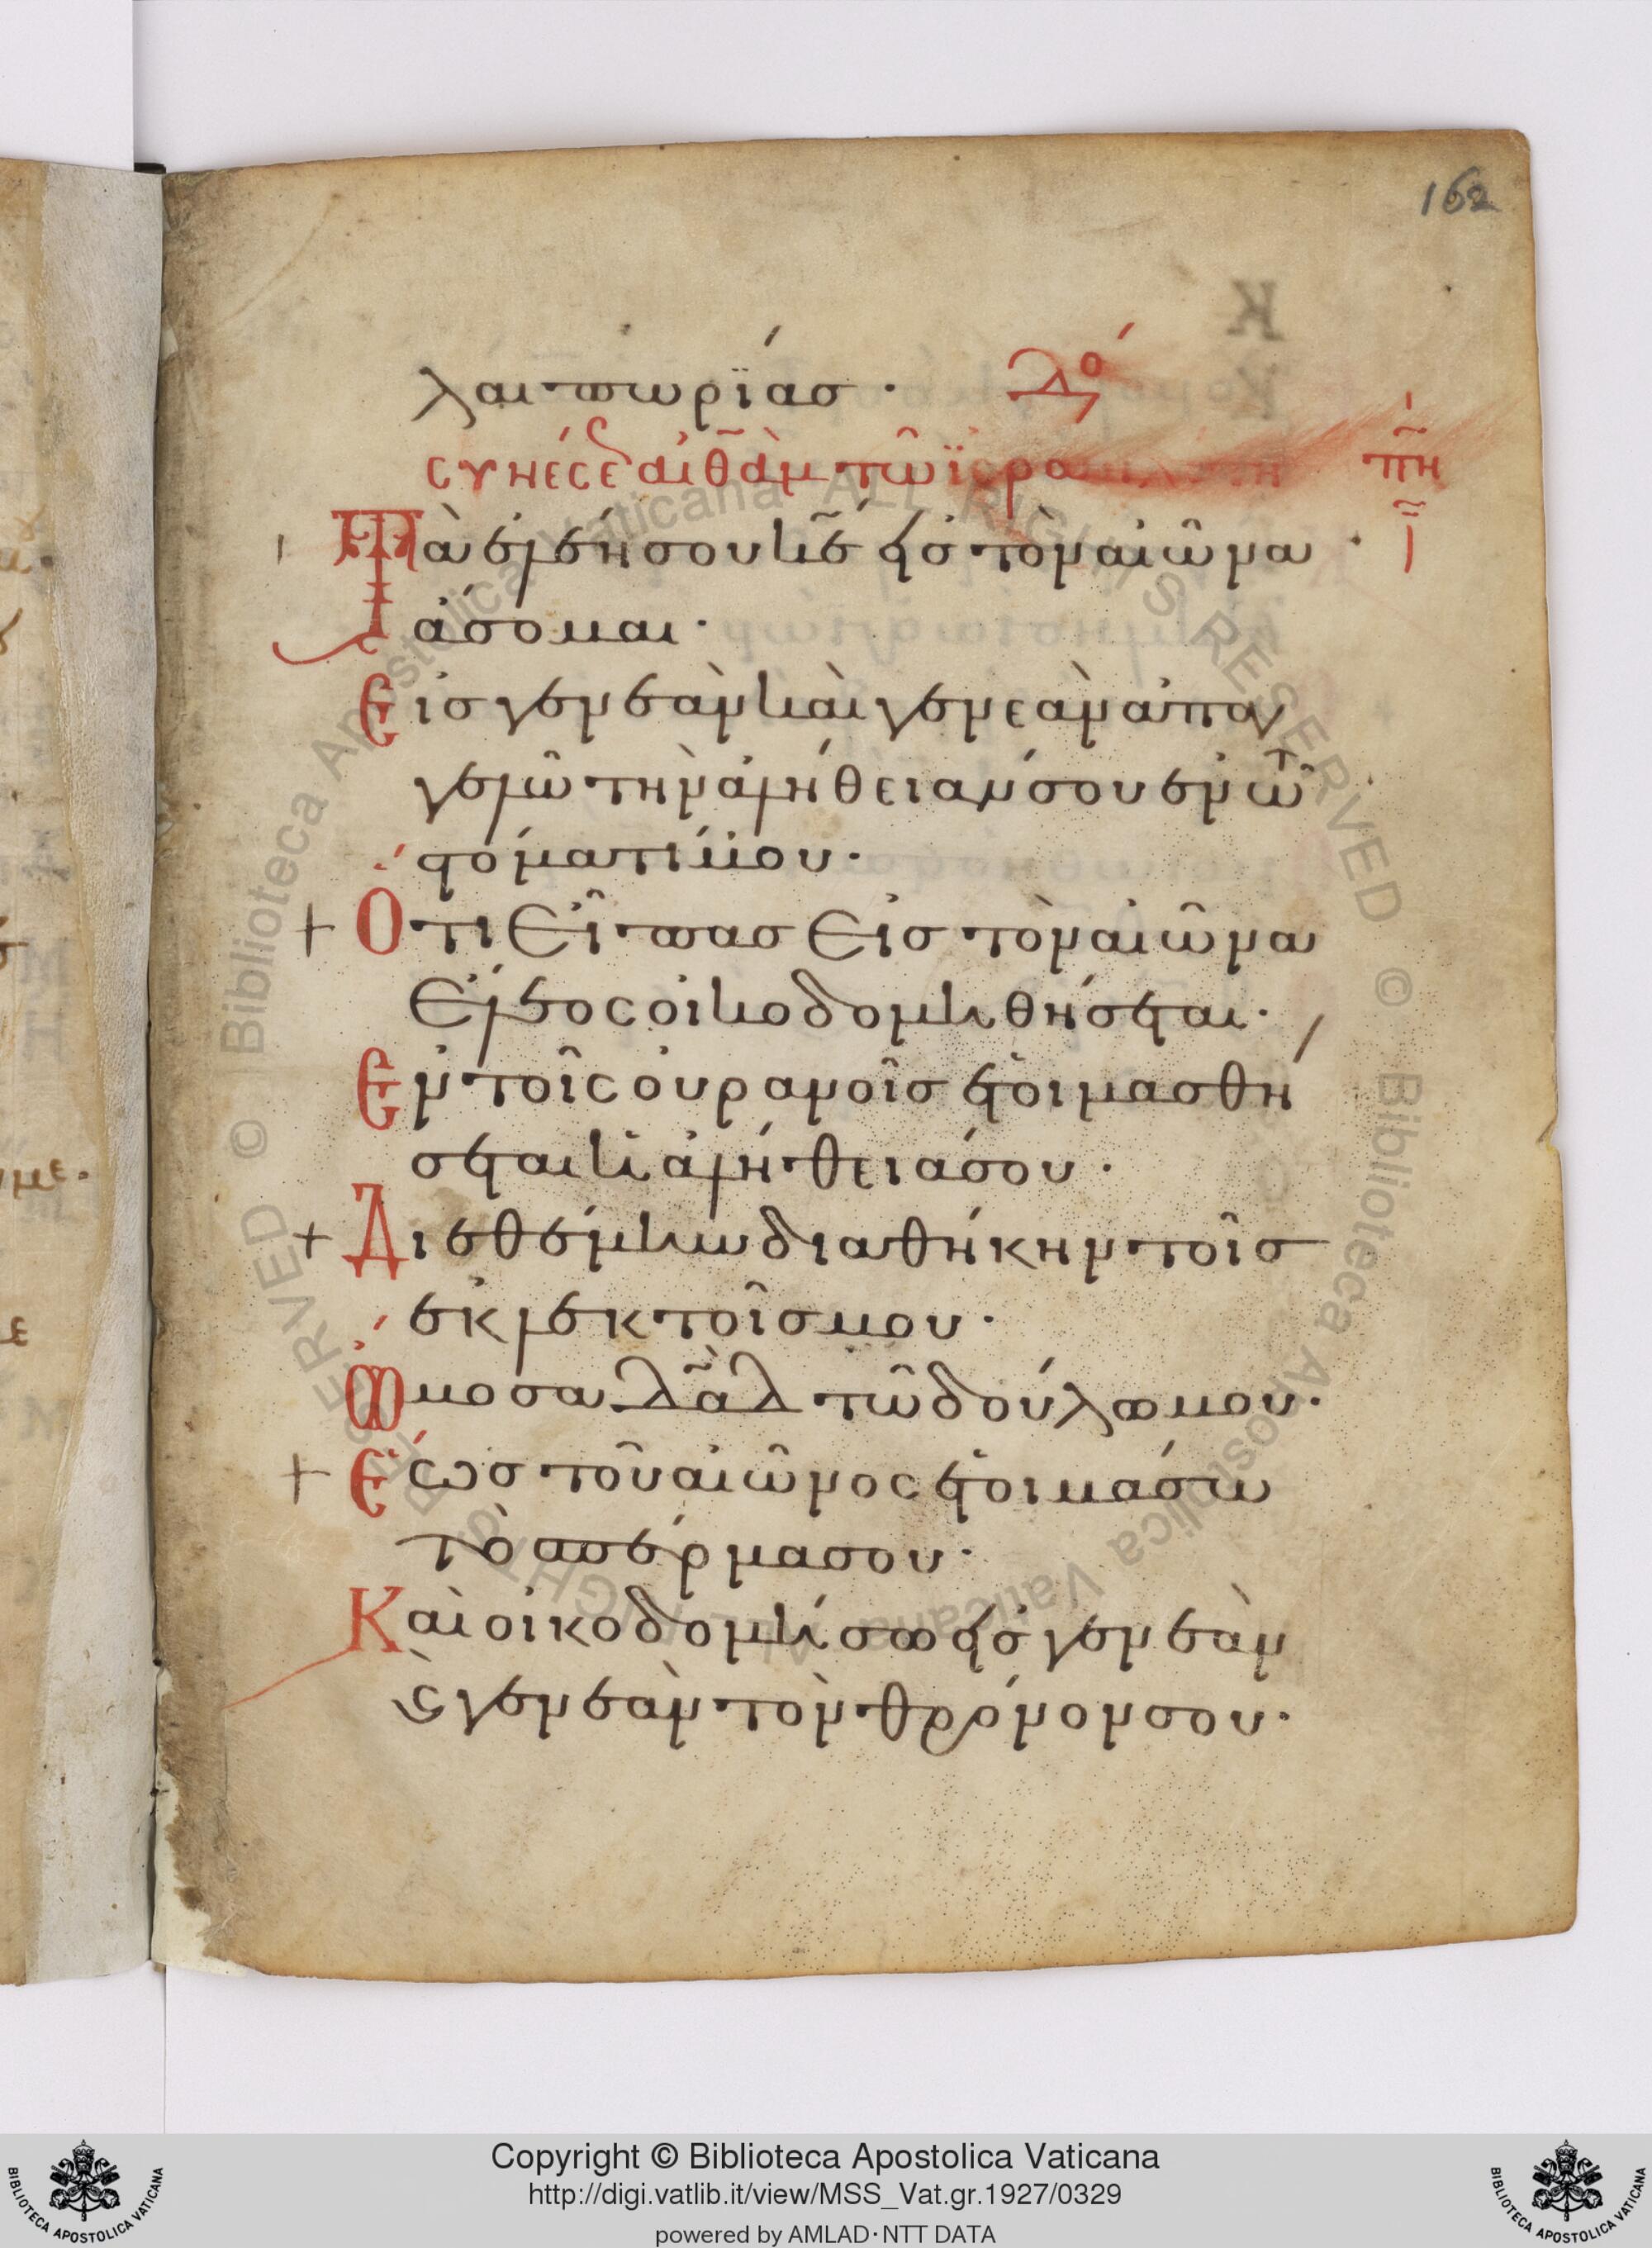 162
λαιπωρίασ · Δο
συνέσεως αἰθὰμ τῶ ϊσρα πη
Τὰ ἐλέη σου κε̅ εἰσ τὸν αἰῶνα ·
ἄσομαι ·
Εἰσ γενεὰν καὶ γενεὰν ἀπαγ
γελῶ τὴν ἀλήθειάν σου ἐν τῶ
στόματί μου ·
Ὅτι εἶπασ εἰσ τὸν αἰῶνα
ἔλεος οἰκοδομηθήσεται ·
Ἐν τοῖς οὐρανοῖσ ἑτοιμασθή
σεται ἡ ἀλήθειά σου ·
Διεθέμην διαθήκην τοῖσ
ἐκλεκτοῖσ μου ·
Ὤμοσα δαδ τῶ δούλω μου ·
Ἕωσ τοῦ αἰῶνος ἑτοιμάσω
τὸ σπέρμα σου ·
Καὶ οἰκοδομήσω εἰσ γενεὰν
ϗ γενεὰν τὸν θρόνον σου ·
© Biblioteca Apostolica Vaticana ALL RIGHTS RESERVED © Biblioteca Apostolica Vaticana ALL RIGHTS RESERVED
Copyright © Biblioteca Apostolica Vaticana
http://digi.vatlib.it/view/MSS_Vat.gr.1927/0329
powered by AMLAD·NTT DATA
BIBLIOTECA APOSTOLICA VATICANA
BIBLIOTECA APOSTOLICA VATICANA